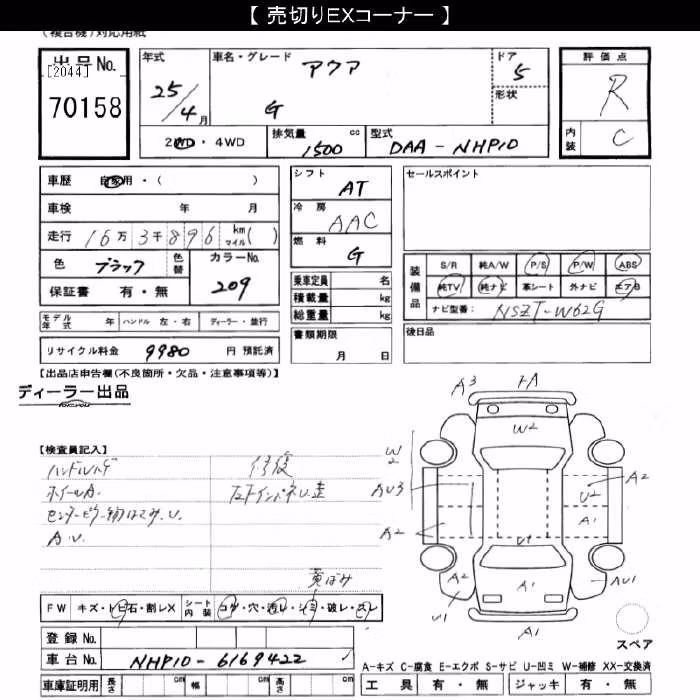 【 売切りEXコーナー 】
(複合機)対応用紙
出品No.
[2044]
70158
年式
25/4月
車名・グレード
アクア
G
ドア
5
形状
評価点
R
内装
C
2WD・4WD
排気量 cc
1500
型式
DAA-NHP10
車歴 自家用・( )
車検 年 月
走行 16万3千896 km マイル( )
色 ブラック 色替
カラーNo.
209
保証書 有・無
シフト
AT
冷房
AAC
燃料
G
乗車定員 名
積載量 kg
総重量 kg
セールスポイント
装備品
S/R 純A/W P/S P/W ABS
純TV 純ナビ 革シート 外ナビ エアB
ナビ型番: NSZT-W62G
モデル年式 年 ハンドル 左・右 ディーラー・並行
書類期限
月 日
後日品
リサイクル料金 9980 円 預託済
【出品店申告欄(不良箇所・欠品・注意事項等)】
ディーラー出品
【検査員記入】
ハンドルハゲ
ホイールA.
A.U.
修復
A3
A
W2
W2
AU3
A2
A2
U2
A1
U1
A2
U1
A1
AU1
A1
FW キズ・トビ石・割レX
シート内装 コゲ・穴・汚レ・シミ・破レ・スレ
登録No.
車台No. NHP10-6169422
スペア
A-キズ C-腐食 E-エクボ S-サビ U-凹ミ W-補修 XX-交換済
車庫証明用 長さ cm 幅 cm 高さ cm
工具 有・無 ジャッキ 有・無